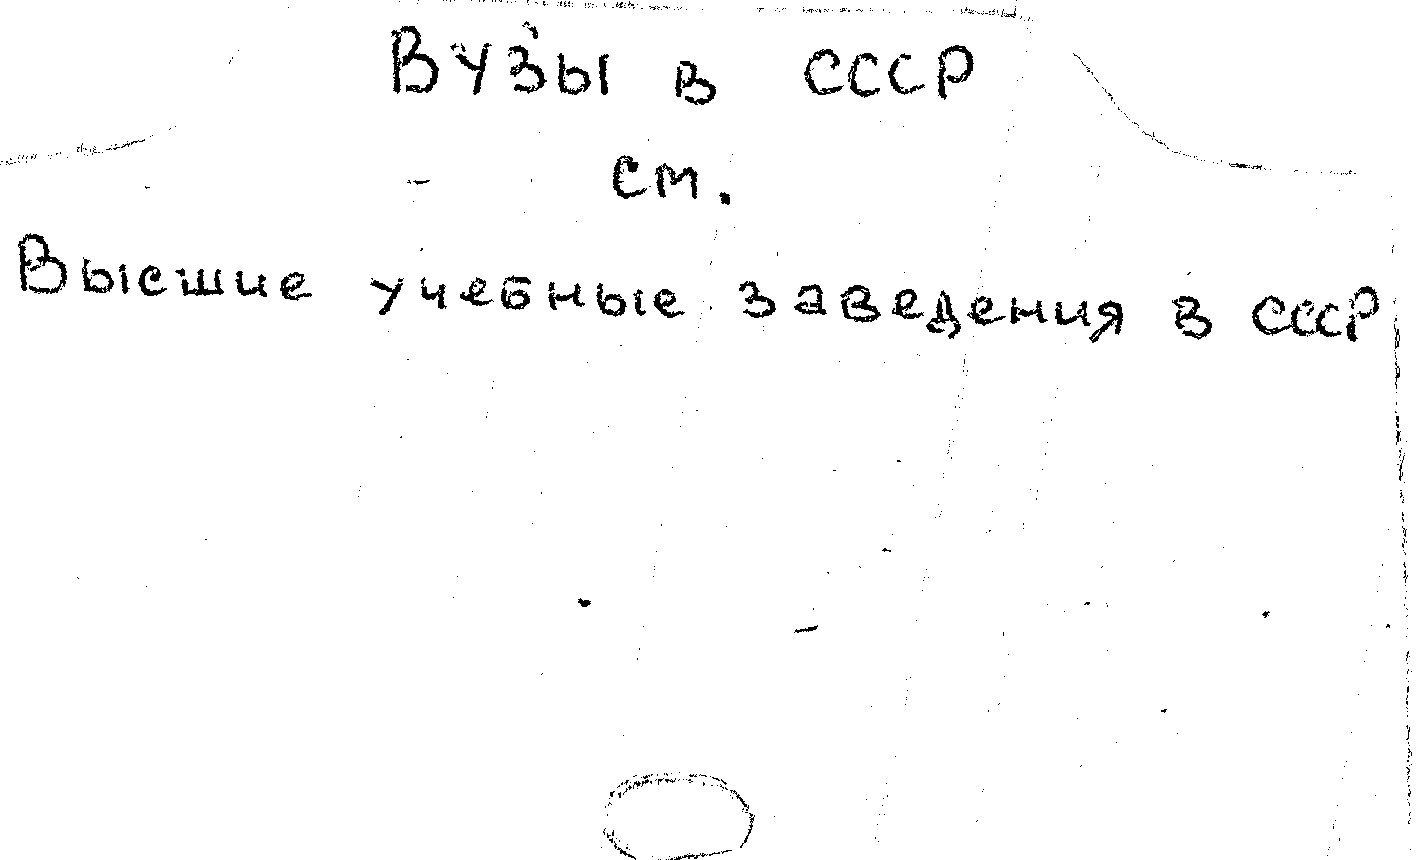 Вузы в СССР
см.
Высшие учебные заведения в СССР